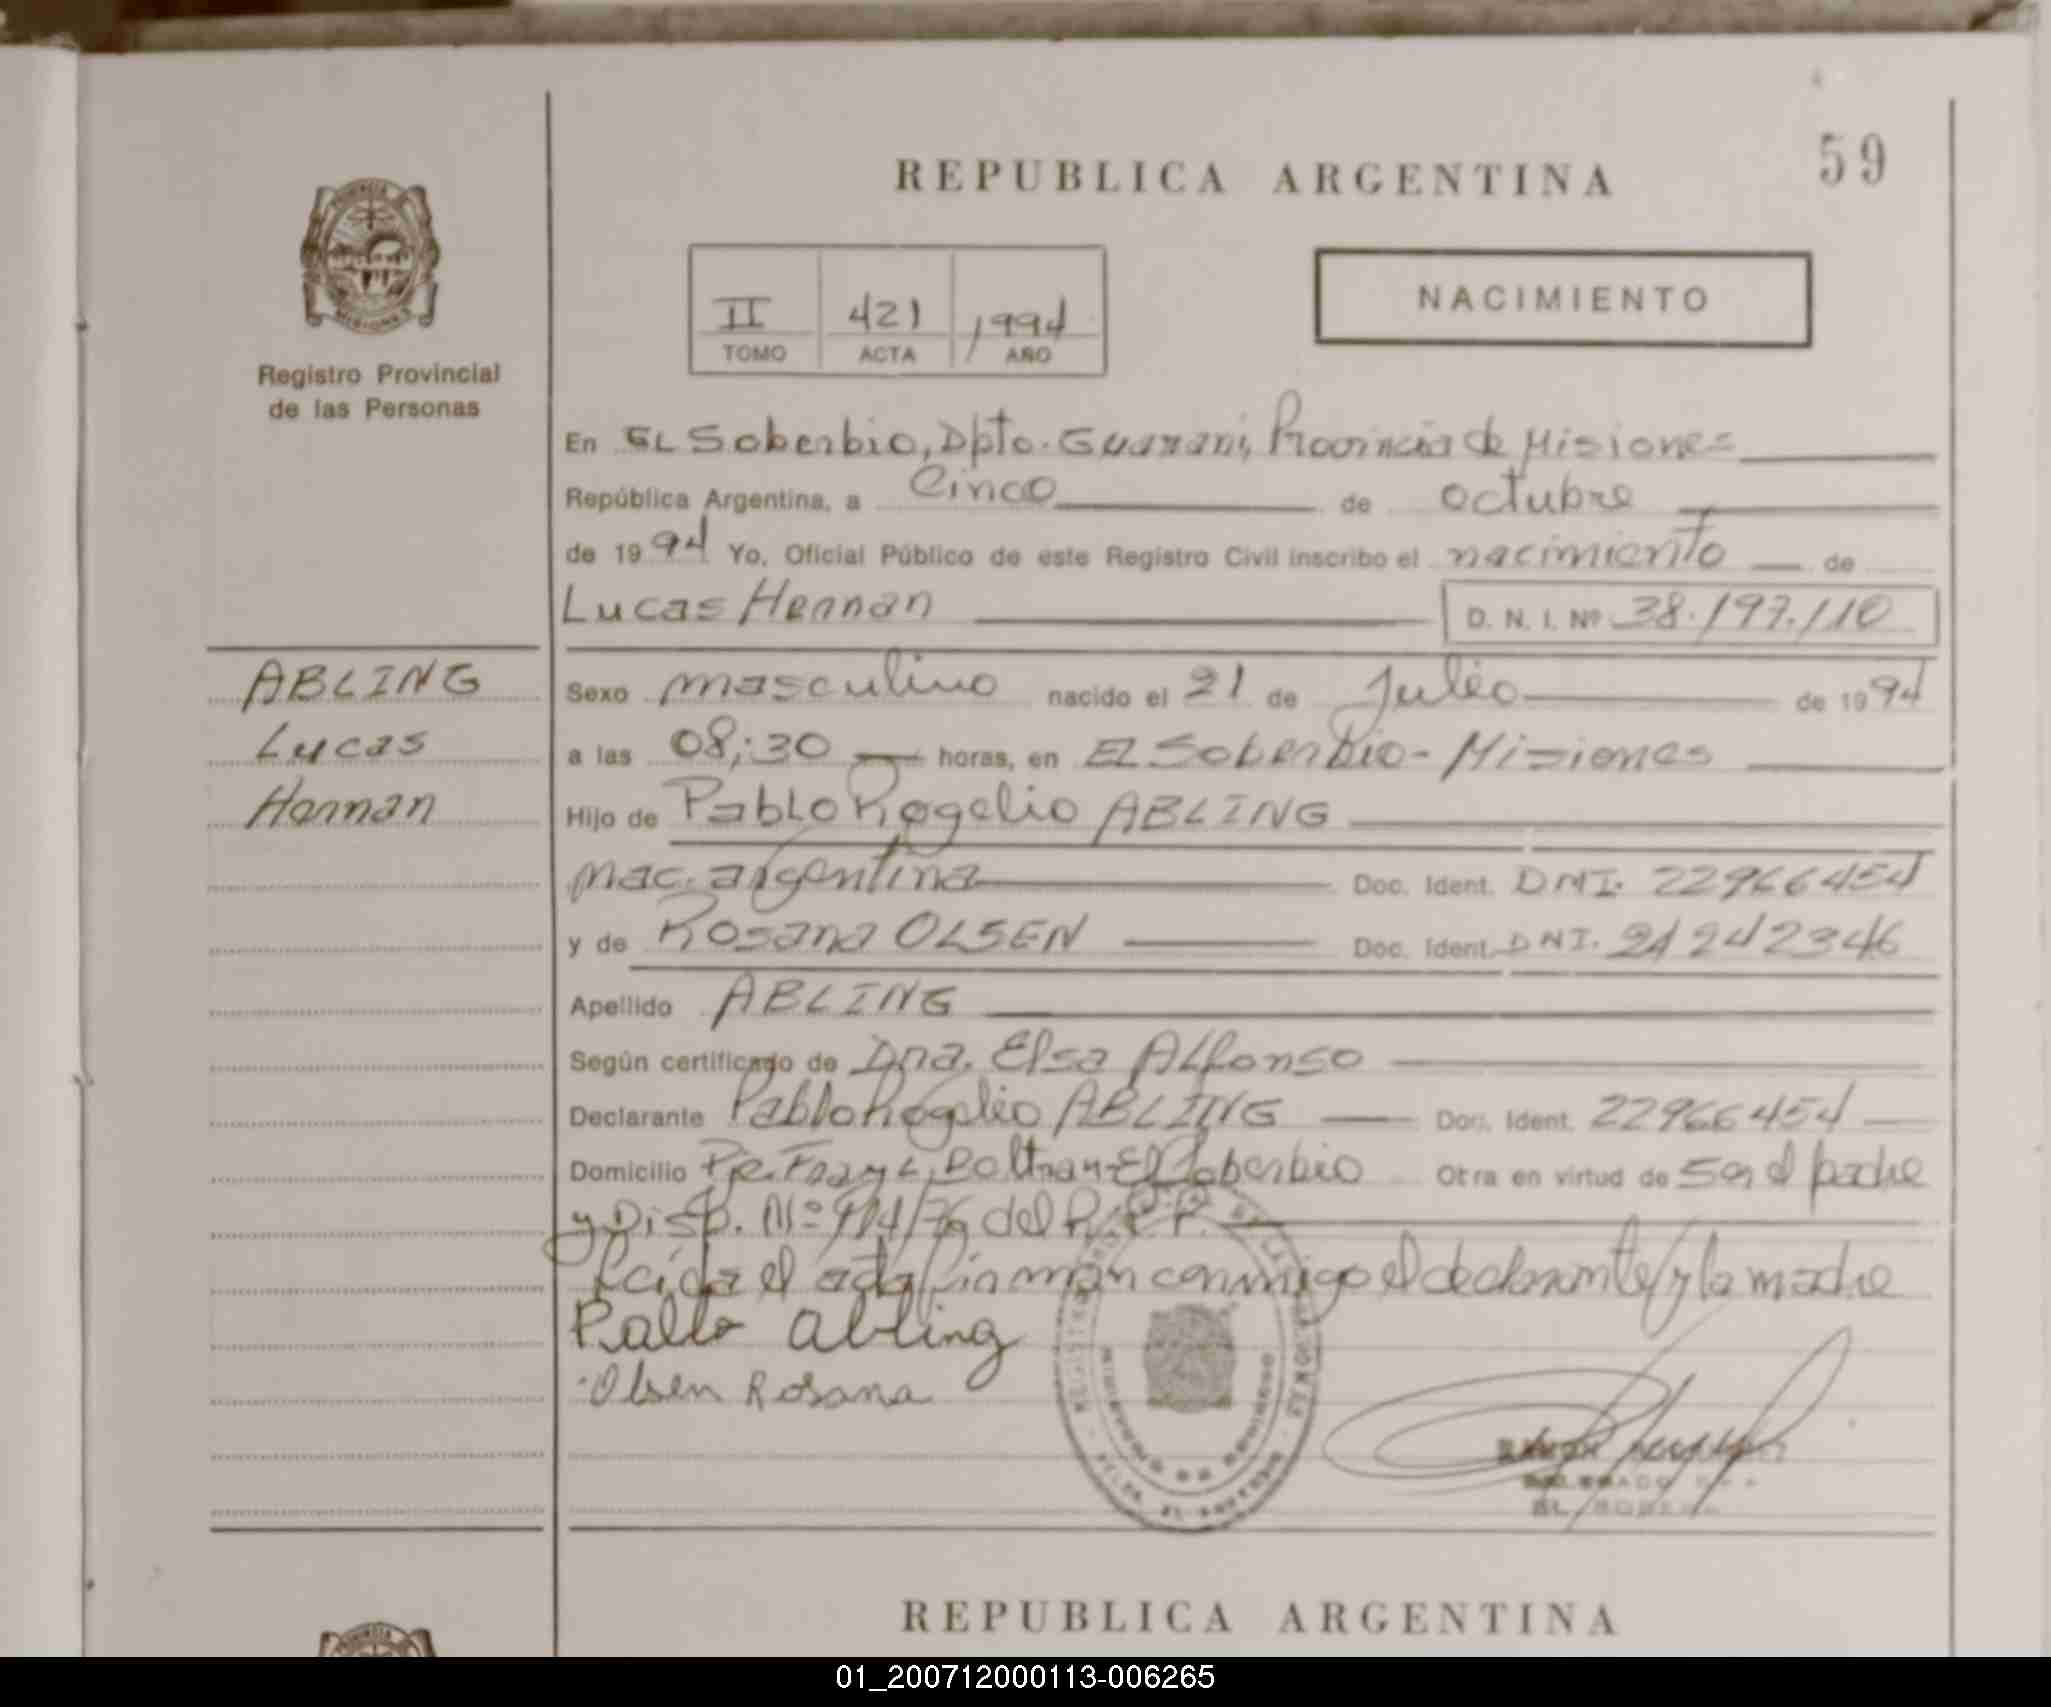 59
REPUBLICA ARGENTINA
PROVINCIA
MISIONES
Registro Provincial
de las Personas
II 421 1994
TOMO ACTA AÑO
NACIMIENTO
En EL Soberbio, Dpto. Guarani, Provincia de Misiones
República Argentina, a Cinco de octubre
de 1994 Yo, Oficial Público de este Registro Civil inscribo el nacimiento de
Lucas Hernan D. N. I. Nº 38.197.110
ABLING
Lucas
Hernan
Sexo masculino nacido el 21 de Julio de 1994
a las 08:30 horas, en EL Soberbio - Misiones
Hijo de Pablo Rogelio ABLING
nac. argentina Doc. Ident. DNI. 22966454
y de Rosana OLSEN Doc. Ident. DNI. 24242346
Apellido ABLING
Según certificado de Dra. Elsa Alfonso
Declarante Pablo Rogelio ABLING Doc. Ident. 22966454
Domicilio Pje. Fray L. Beltran - El Soberbio Otra en virtud de Ser el padre
y Disp. Nº 914/76 del R.P.P.
Leída el acta firman conmigo el declarante y la madre
Pablo Abling
Olsen Rosana
DELEGADO
EL SOBERBIO
REPUBLICA ARGENTINA
01_200712000113-006265